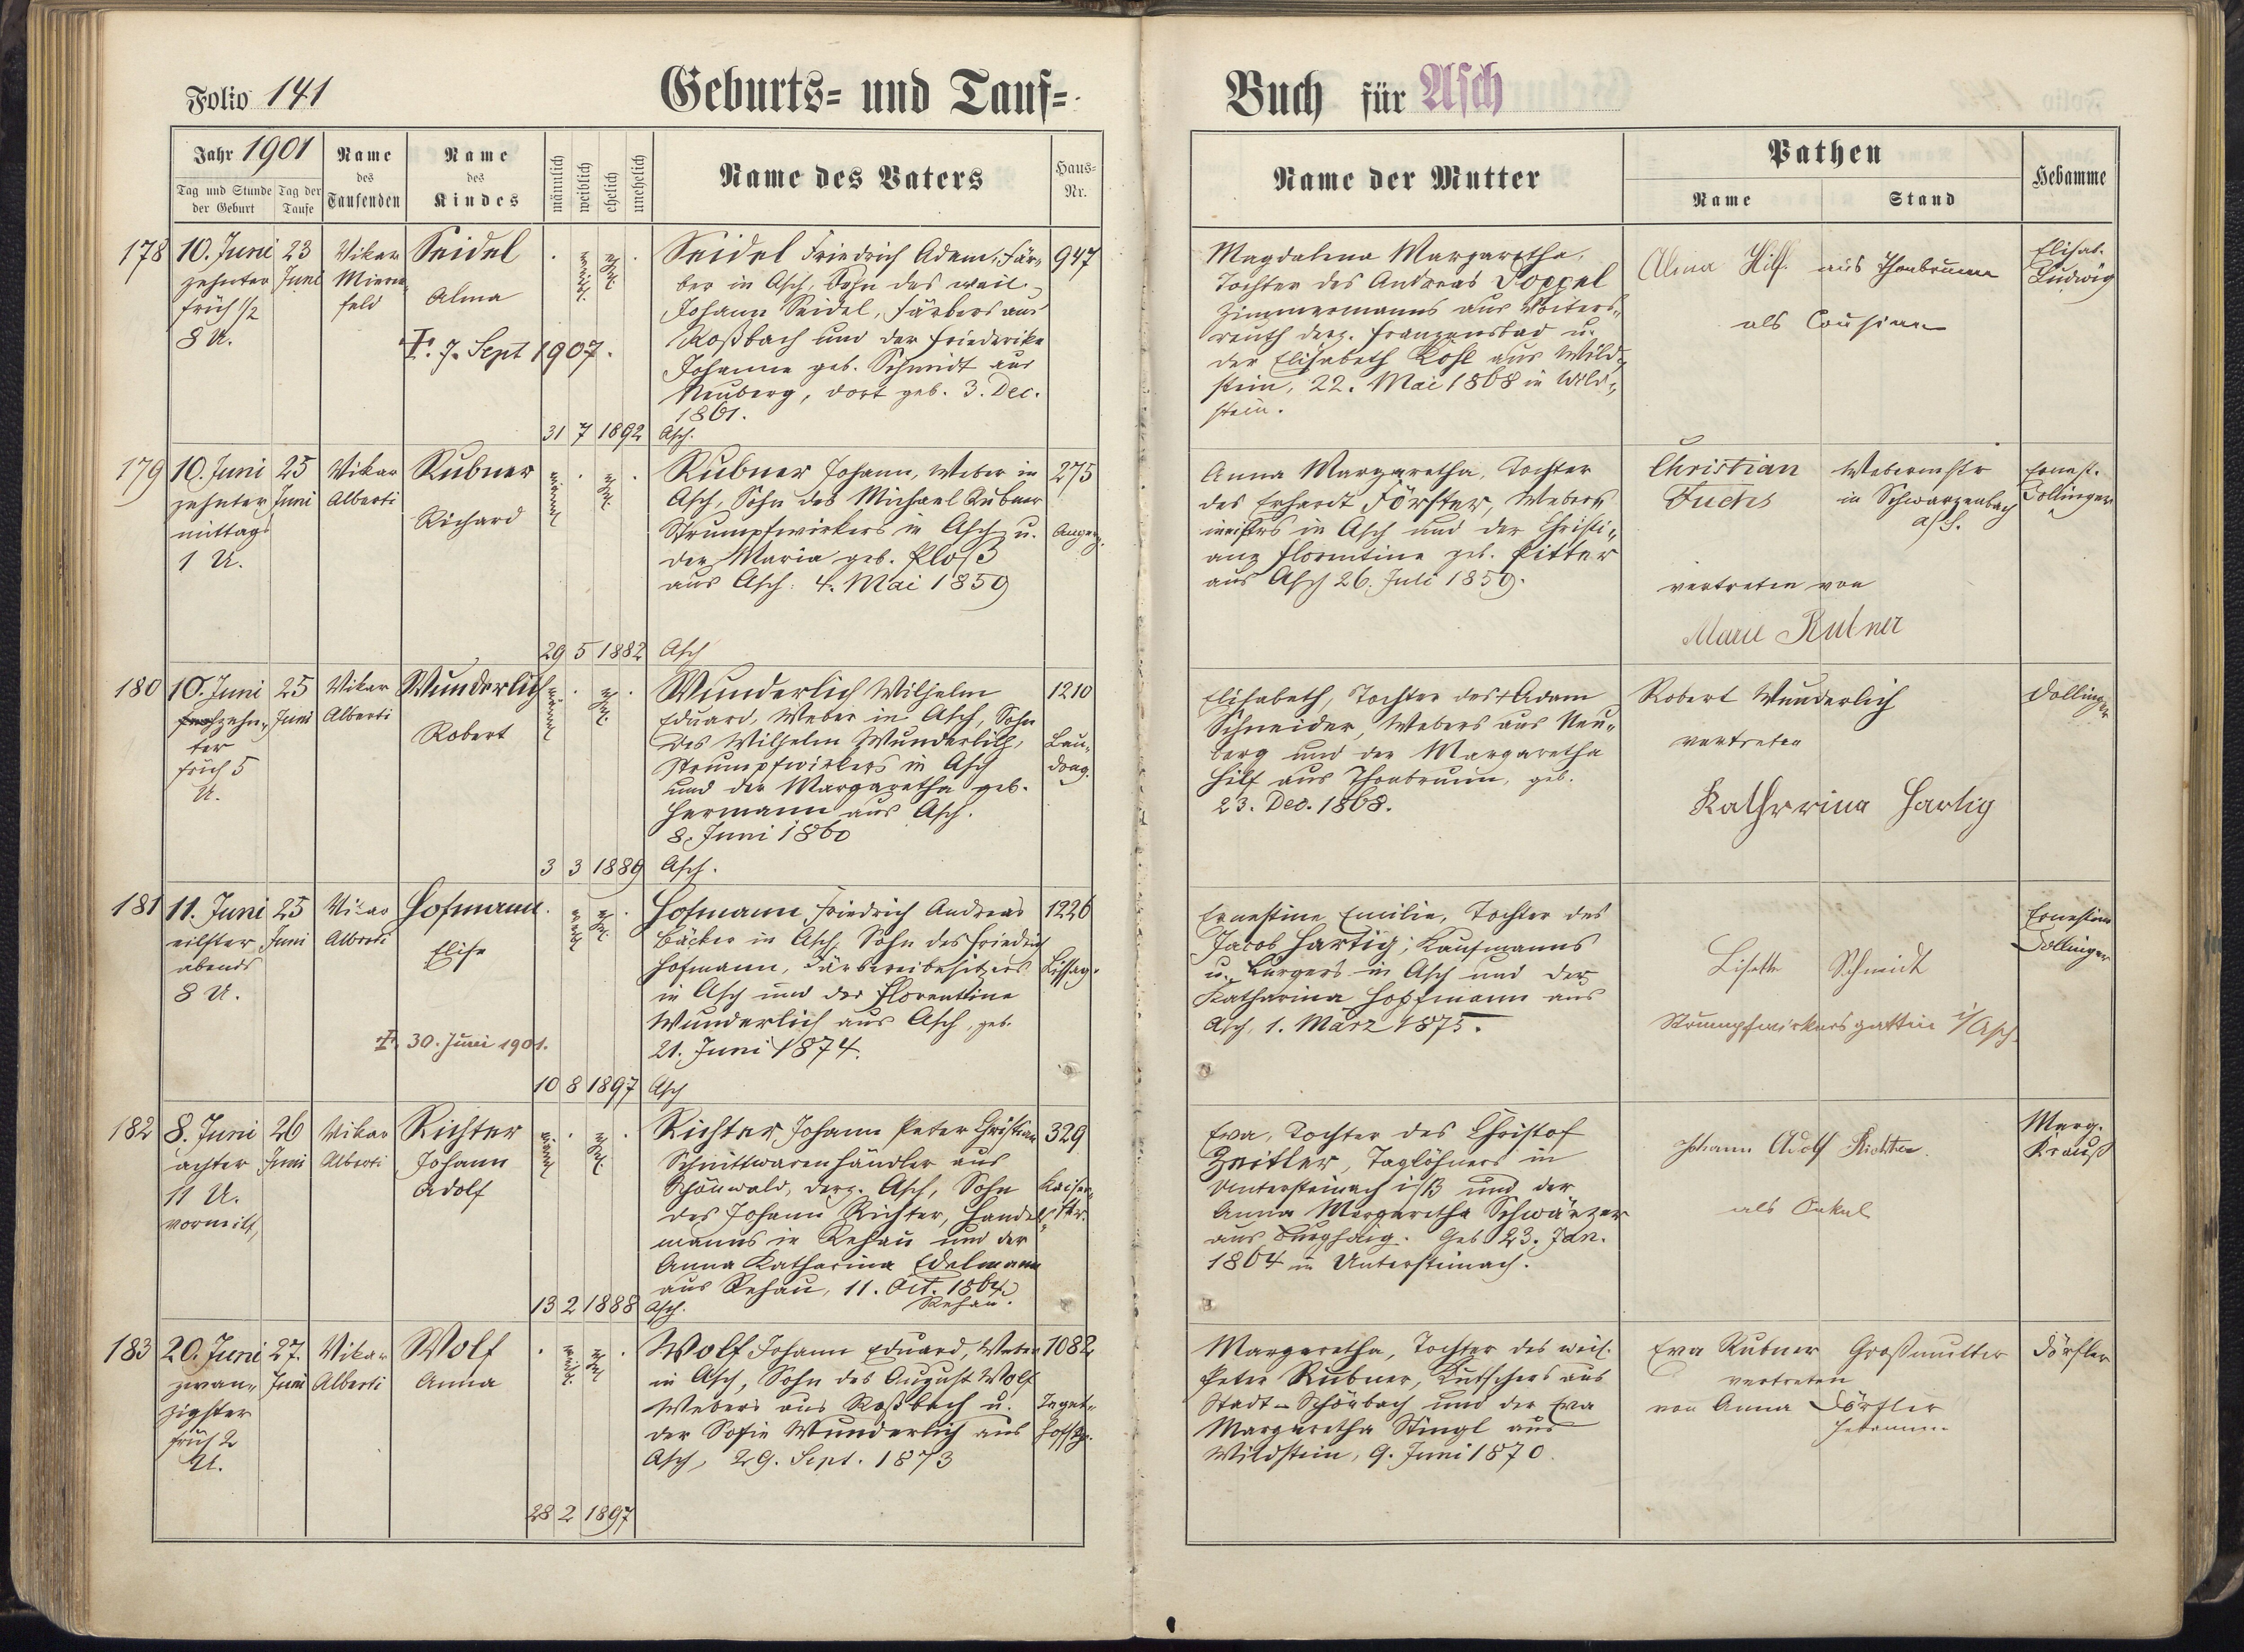 Folio 141
Geburts- und Tauf-
Buch für Asch
Jahr 1901
Tag und Stunde der Geburt
Tag der Taufe
Name des Taufenden
Name des Kindes
männlich
weiblich
ehelich
unehelich
Name des Vaters
Haus-Nr.
Name der Mutter
Pathen
Name
Stand
Hebamme
178
10. Juni
zehnter
früh 1/2
8 U.
23
Juni
Vikar
Seidel
Alma
†. 7. Sept 1907.
weibl.
ehel.
Seidel Friedrich Adam, Fär-
ber in Asch, Sohn des weil.
Johann Seidel, Färbers aus
Roßbach und der Friederike
Johanna geb. Schmidt aus
Neuberg, dort geb. 3. Dec.
1861.
31 7 1892 Asch.
947
Magdalena Margaretha,
Tochter des Andreas Poppel
Zimmermanns aus Voiters-
reuth derz. Franzensbad u.
der Elisabeth Kohl aus Wild-
stein, 22. Mai 1868 in Wild-
stein.
Alma Hilf. aus Thonbrunn
als Cousine
Elisab.
Ludwig
179
10. Juni
zehnter
mittags
1 U.
25
Juni
Vikar
Alberti
Rubner
Richard
männl
ehel.
Rubner Johann, Weber in
Asch, Sohn des Michael Rubner
Strumpfwirkers in Asch u.
der Maria geb. Ploß
aus Asch. 4. Mai 1859
29 5 1882 Asch
275
Angerg.
Anna Margaretha, Tochter
des Erhardt Förster, Weber-
meisters in Asch und der Christi-
ane Florentine geb. Pitter
aus Asch 26. Juli 1859.
Christian
Fuchs
Webermstr
in Schwarzenbach
a/S.
vertreten von
Marie Rubner
Ernest.
Dollinger
180
10. Juni
zehn-
ter
früh 5
U.
25
Juni
Vikar
Alberti
Wunderlich
Robert
männl
ehel.
Wunderlich Wilhelm
Eduard, Weber in Asch, Sohn
des Wilhelm Wunderlich,
Strumpfwirkers in Asch
und der Margaretha geb.
Hermann aus Asch.
8. Juni 1860
3 3 1889 Asch.
1210
Lau-
dong.
Elisabeth, Tochter des † Adam
Schneider, Webers aus Neu-
berg und der Margaretha
Hilf aus Thonbrunn, geb.
23. Dec. 1868.
Robert Wunderlich
vertreten
Katherina Hartig
Dollinger
181
11. Juni
eilfter
abends
8 U.
25
Juni
Vikar
Alberti
Hofmann
Elise
†. 30. Juni 1901.
weibl
ehel.
Hofmann Friedrich Andreas
Bäcker in Asch, Sohn des Friedrich
Hofmann, Färbereibesitzers
in Asch und der Florentine
Wunderlich aus Asch, geb.
21. Juni 1874.
10 8 1897 Asch
1226
Lissag.
Ernestine Emilie, Tochter des
Jacob Hartig, Kaufmanns
u. Bürgers in Asch und der
Katharina Hopfmann aus
Asch, 1. März 1875.
Lisette Schmidt
Strumpfwirkersgattin i/Asch.
Ernestine
Dollinger
182
8. Juni
achter
11 U.
26
Juni
Vikar
Alberti
Richter
Johann
Adolf
männl
ehel.
Richter Johann Peter Christian
Schnittwarenhändler aus
Schönwald, derz. Asch, Sohn
des Johann Richter, Handels-
manns in Rehau und der
Anna Katharina Edelmann
aus Rehau, 11. Oct. 1864
Rehau.
13 2 1888 Asch.
329
Kaiser-
str.
Eva, Tochter des Christof
Zeitler, Taglöhners in
Untersteinach i/B und der
Anna Margaretha Schwärzer
aus Burghaig. Geb. 23. Jan.
1864 in Untersteinach.
Johann Adolf Richter.
als Onkel
Marg.
Krauß
183
20. Juni
zwan-
zigster
früh 2
U.
27.
Juni
Vikar
Alberti
Wolf
Anna
weibl.
ehel
Wolf Johann Eduard, Weber
in Asch, Sohn des August Wolf
Webers aus Roßbach u.
der Sofie Wunderlich aus
Asch, 29. Sept. 1873
28 2 1897
1082
Margaretha, Tochter des weil.
Peter Rubner, Kutschers aus
Stadt-Schönbach und der Eva
Margaretha Stingl aus
Wildstein, 9. Juni 1870.
Eva Rubner Großmutter
vertreten
von Anna Dörfler
Hebamme
Dörfler